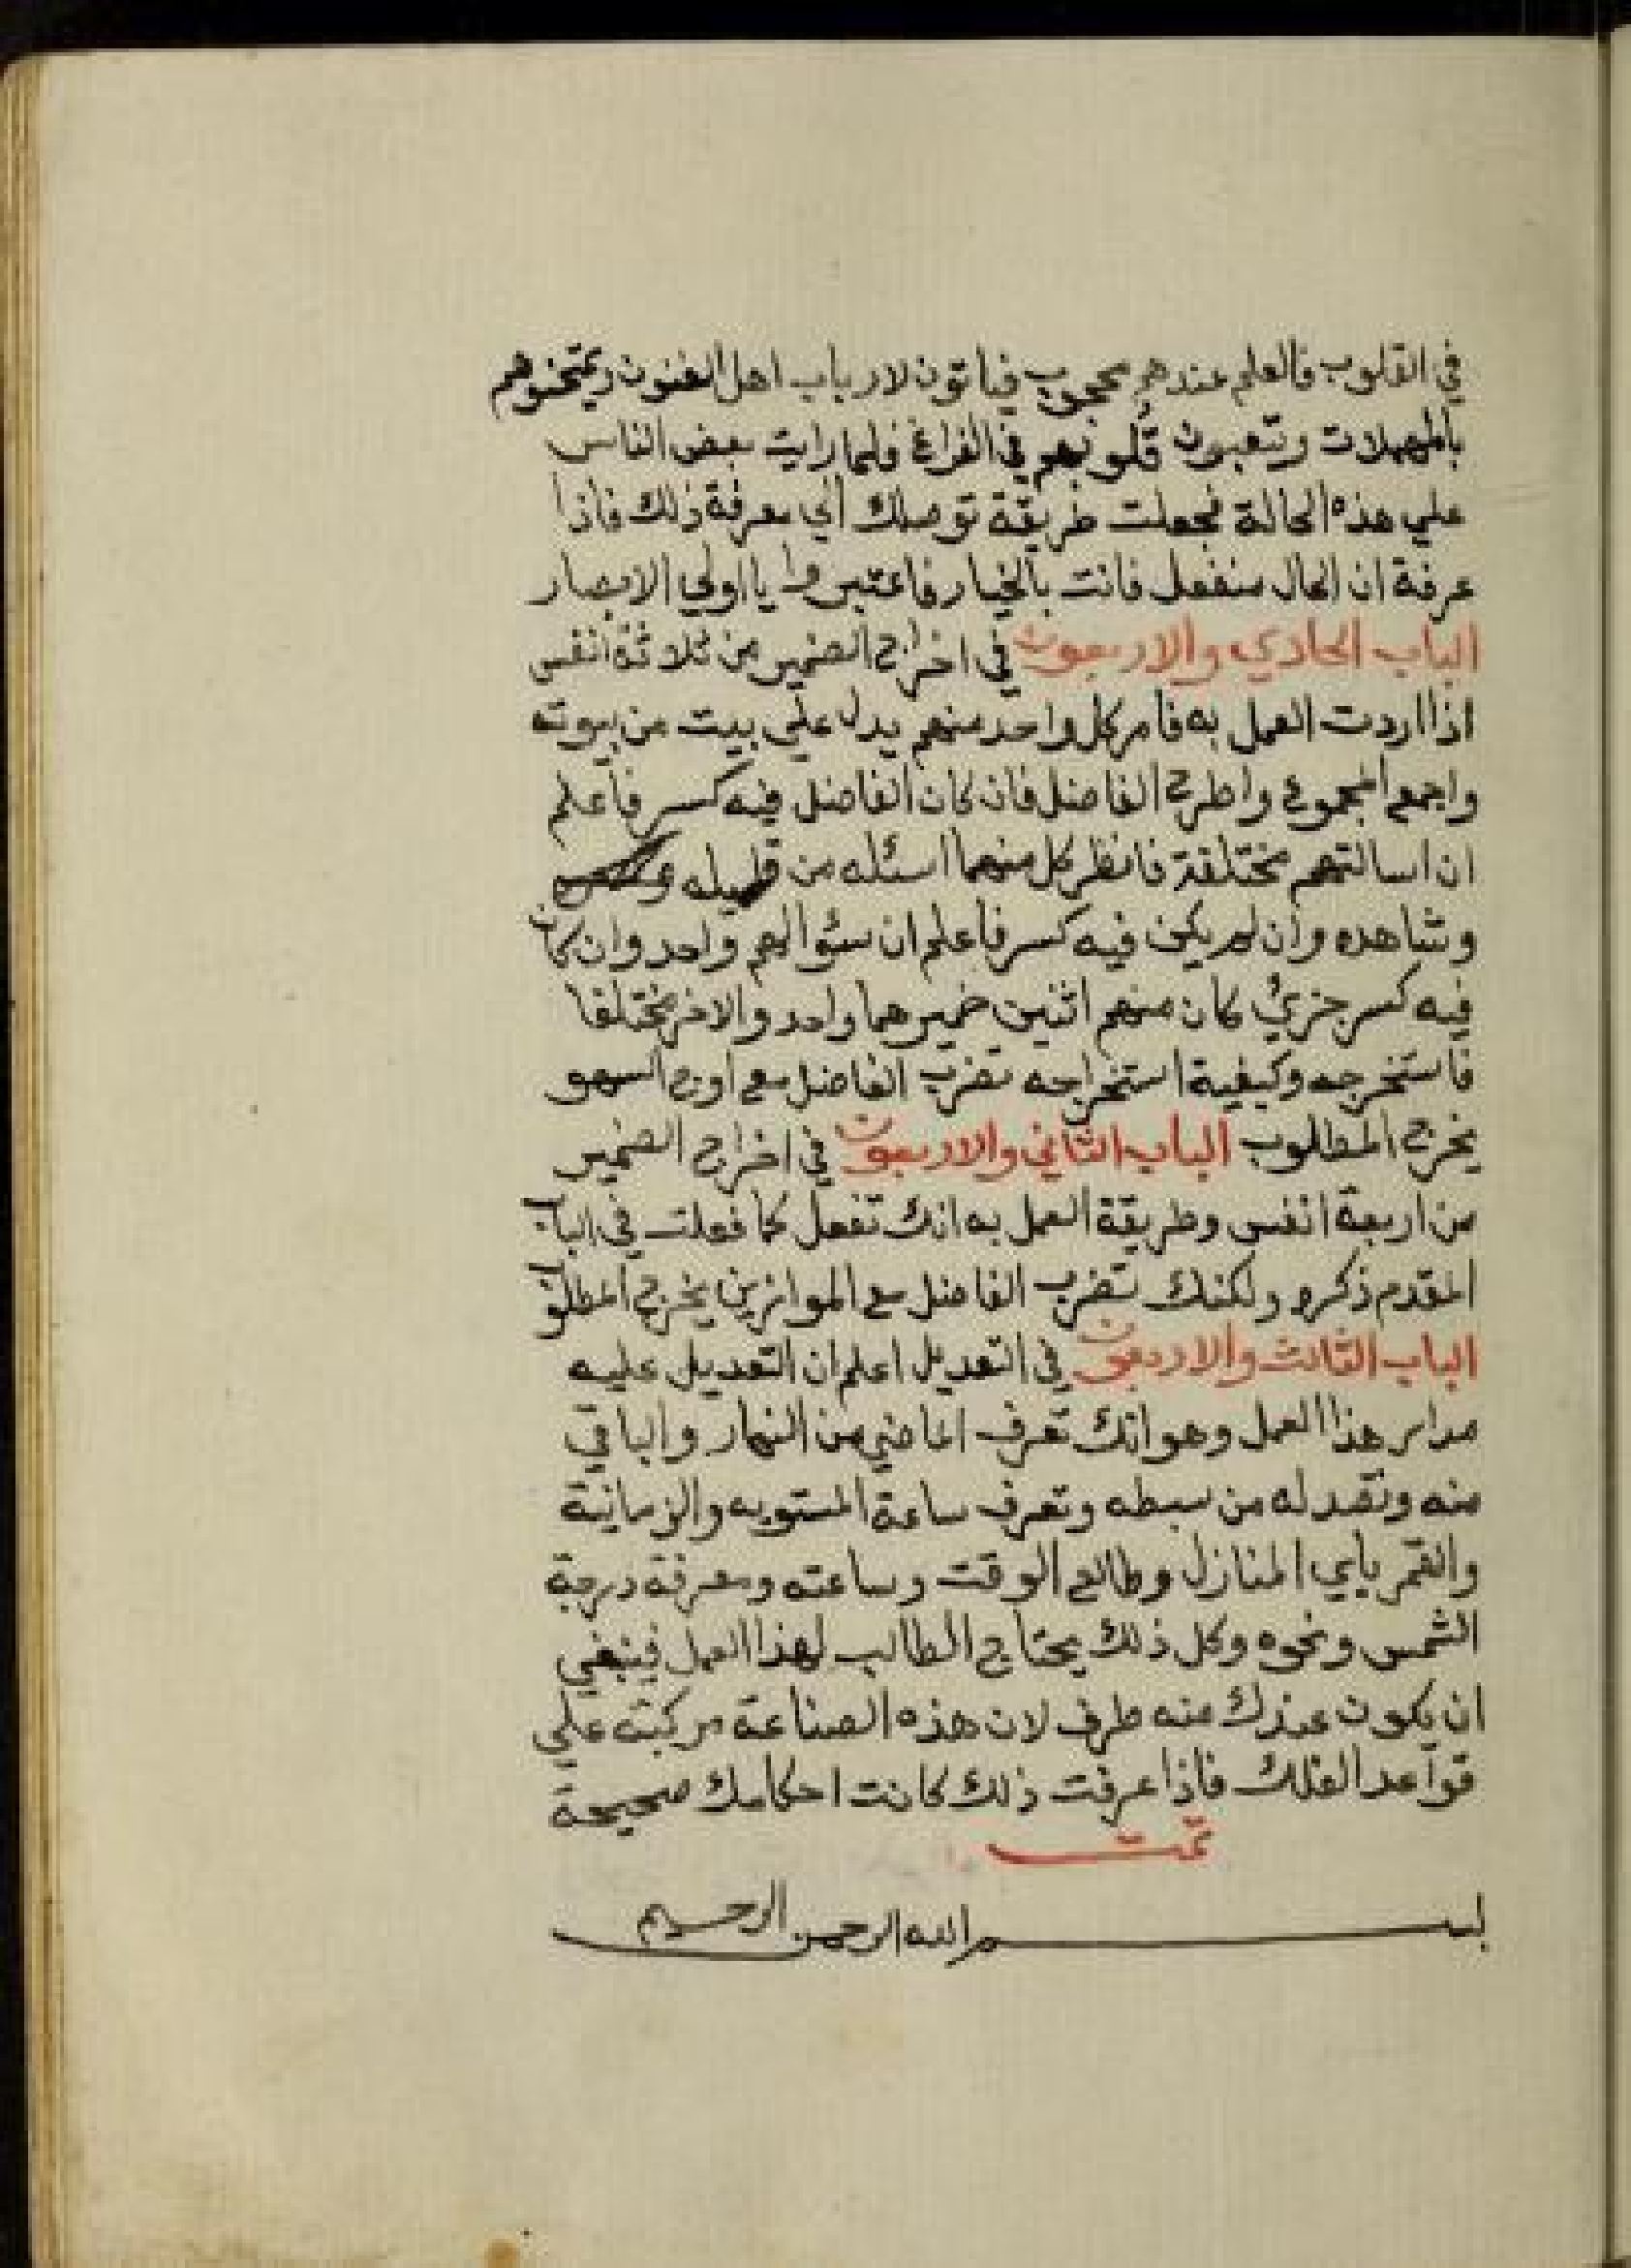 في القلوب فالعلم عندهم محجوب فياتون لارباب اهل الفنون ويمتحنوهم
بالمهملات ويتعبون قلوبهم في الفراغ فلما رايت بعض الناس
علي هذه الحالة فجعلت طريقة توصلك الي معرفة ذلك فاذا
عرفة ان الحال منفعل فانت بالخيار فاعتبروا يا اولي الابصار
الباب الحادي والاربعون في اخراج الضمير من ثلاثة انفس
اذا اردت العمل به فامر كل واحد منهم يدل علي بيت من بيوته
واجمع المجموع واطرح الفاضل فان كان الفاضل فيه كسر فاعلم
ان اسالتهم مختلقة فانظر كل منهما اسئله من قبيله
وشاهده وان لم يكن فيه كسر فاعلم ان سئوالهم واحد وان كان
فيه كسر جزئي كان منهم اثنين ضميرهما واحد والاخر مختلقا
فاستخرجه وكيفية استخراجه تضرب الفاضل مع اوج السهو
يخرج المطلوب الباب الثاني والاربعون في اخراج الضمير
من اربعة انفس وطريقة العمل به انك تفعل كما فعلت في الباب
المقدم ذكره ولكنك تضرب الفاضل مع الموازين يخرج المطلو
الباب الثالث والاربعون في التعديل اعلم ان التعديل عليه
مدار هذا العمل وهو انك تعرف الماضي من النهار والباقي
منه وتقد له من سبطه وتعرف ساعة المستويه والزمانية
والقمر باي المنازل وطالع الوقت وساعته ومعرفة درجة
الشمس ونحوه وكل ذلك يحتاج الطالب لهذا العمل فينبغي
ان يكون عندك منه طرف لان هذه الصناعة مركبته علي
قواعد الفلك فاذا عرفت ذلك كانت احكامك صحيحة
تمت
بسم الله الرحمن الرحيم